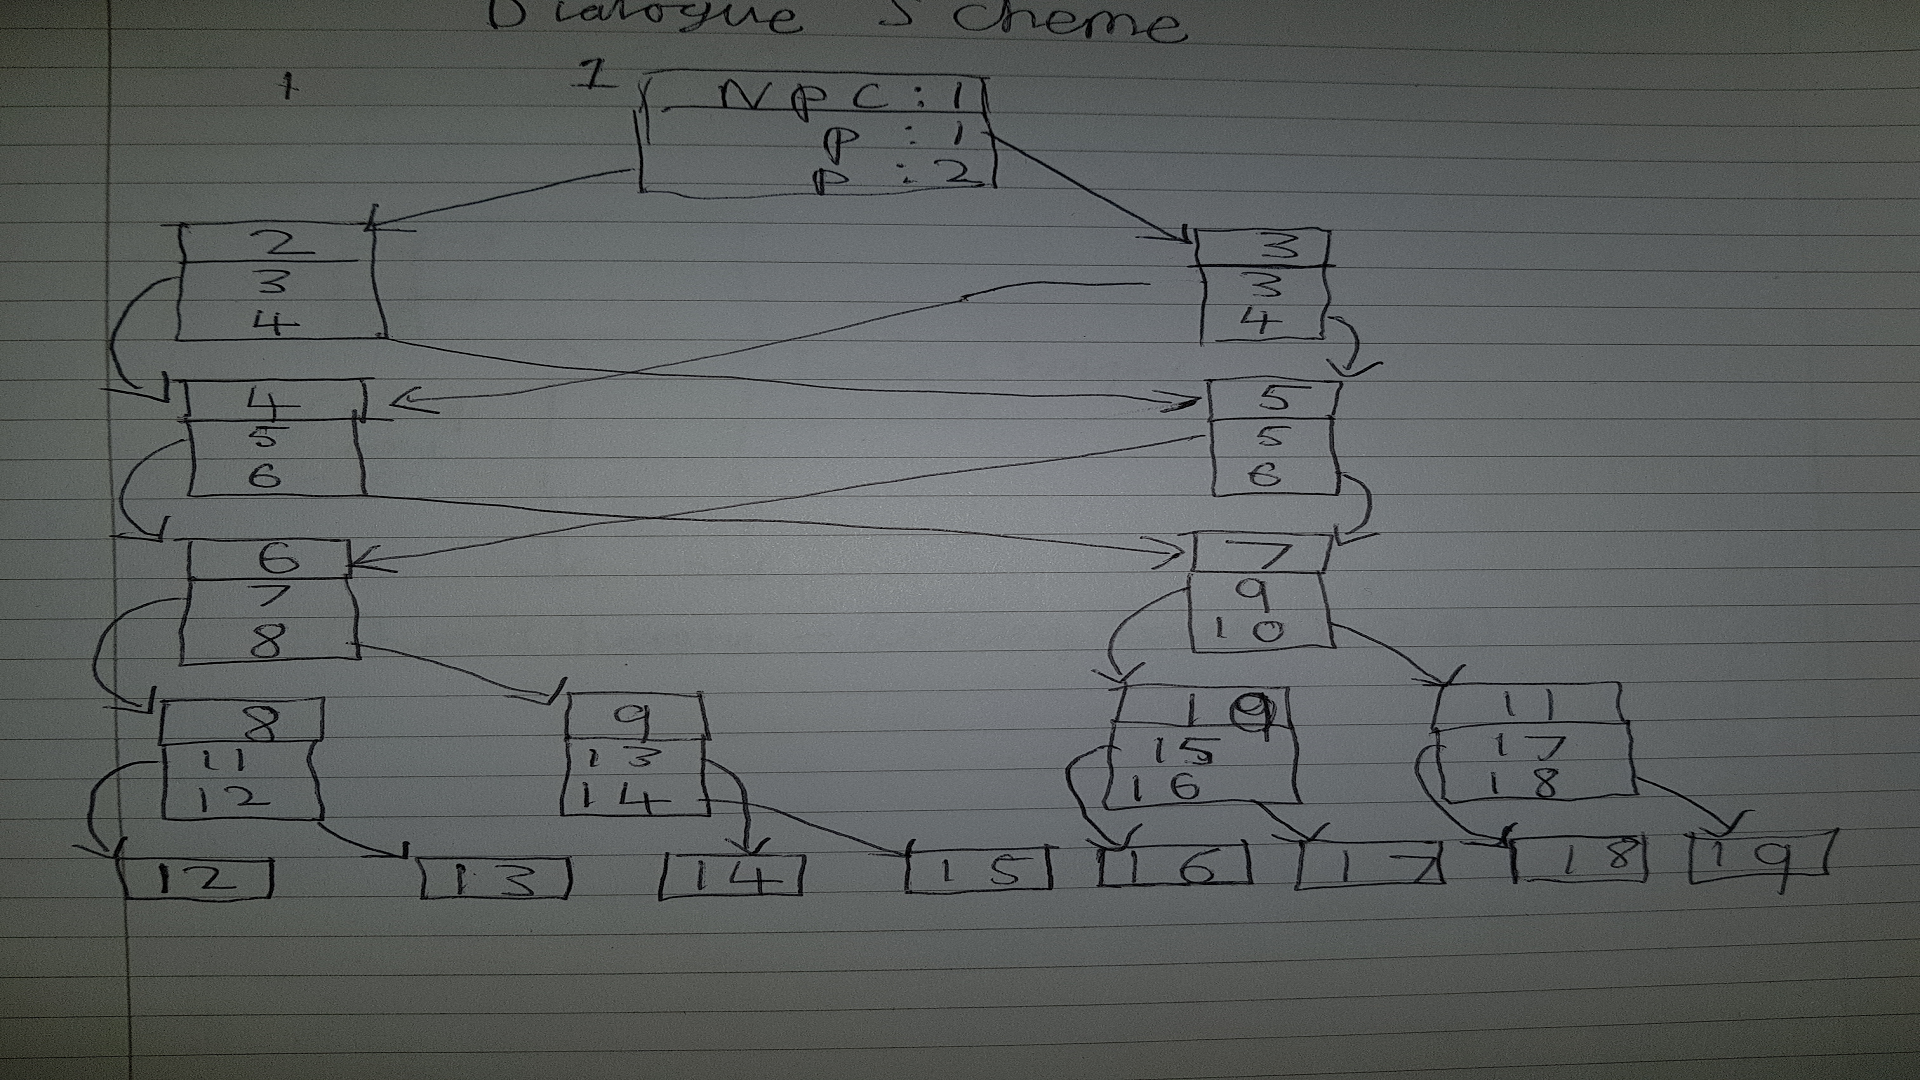 Dialogue Scheme
1
NPC : 1
P : 1
P : 2
2
3
4
3
3
4
4
5
6
5
5
6
6
7
8
7
9
10
8
11
12
9
13
14
10
15
16
11
17
18
12
13
14
15
16
17
18
19